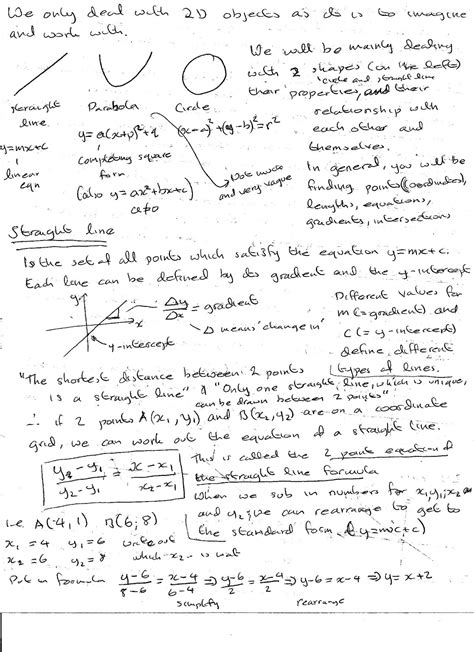 We only deal with 2D objects as it is to imagine
and work with.
We will be mainly dealing
with 2 shapes (on the left)
circle and straight line
their properties, and their
relationship with
each other and
themselves.
In general, you will be
finding points (coordinates),
lengths, equations,
gradients, intersections
straight
line
y=mx+c
linear
eqn
Parabola
y=a(x+p)²+q
completing square
form
(also y=ax²+bx+c)
a≠0
Circle
(x-a)²+(y-b)²=r²
Not much
and very vague
Straight line
Is the set of all points which satisfy the equation y=mx+c.
Each line can be defined by its gradient and the y-intercept
y
x
Δy/Δx = gradient
Δ means 'change in'
y-intercept
Different values for
m (=gradient) and
c (= y-intercept)
define different
types of lines.
"The shortest distance between 2 points
is a straight line" & "Only one straight line, which is unique,
can be drawn between 2 points"
∴ if 2 points A(x₁, y₁) and B(x₂, y₂) are on a coordinate
grid, we can work out the equation of a straight line.
(y-y₁)/(y₂-y₁) = (x-x₁)/(x₂-x₁)
This is called the 2 point equation of
the straight line formula
When we sub in numbers for x₁, y₁, x₂ and
and y₂, we can rearrange to get to
the standard form (y=mx+c)
i.e. A(4,1) B(6,8)
x₁ = 4 y₁=6 write out
x₂ = 6 y₂=8 which x₂ is
Put in formula (y-6)/(8-6) = (x-4)/(6-4) ⇒ (y-6)/2 = (x-4)/2 ⇒ y-6=x-4 ⇒ y=x+2
simplify rearrange